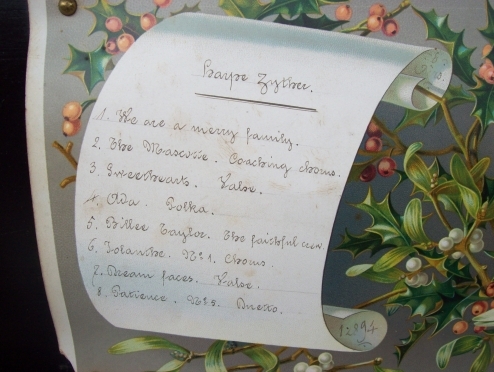 Harpe Zyther.
1. We are a merry family.
2. The Mascotte. Coaching chorus.
3. Sweethearts. Valse.
4. Ada. Polka.
5. Billee Taylor. The faithful crew
6. Iolanthe. No 1. Chorus.
7. Dream faces. Valse.
8. Patience. No 5. Duetto.